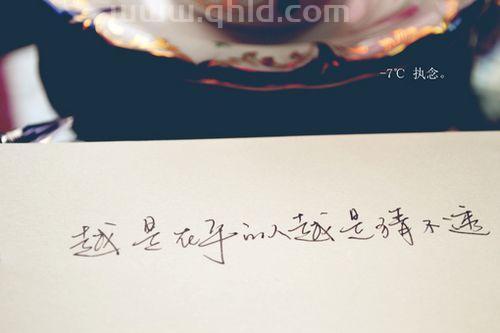 www.qhld.com
-7℃ 执念。
越是在乎的人越是猜不透